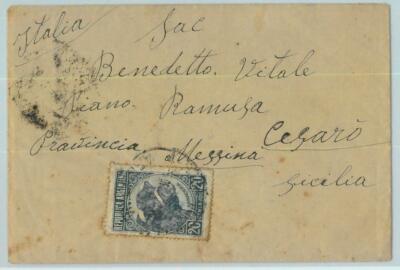 Italia
Sac
Benedetto Vitale
Piano Ramusa
Cesarò
Provincia Messina
Sicilia
REPUBLICA ARGENTINA
20